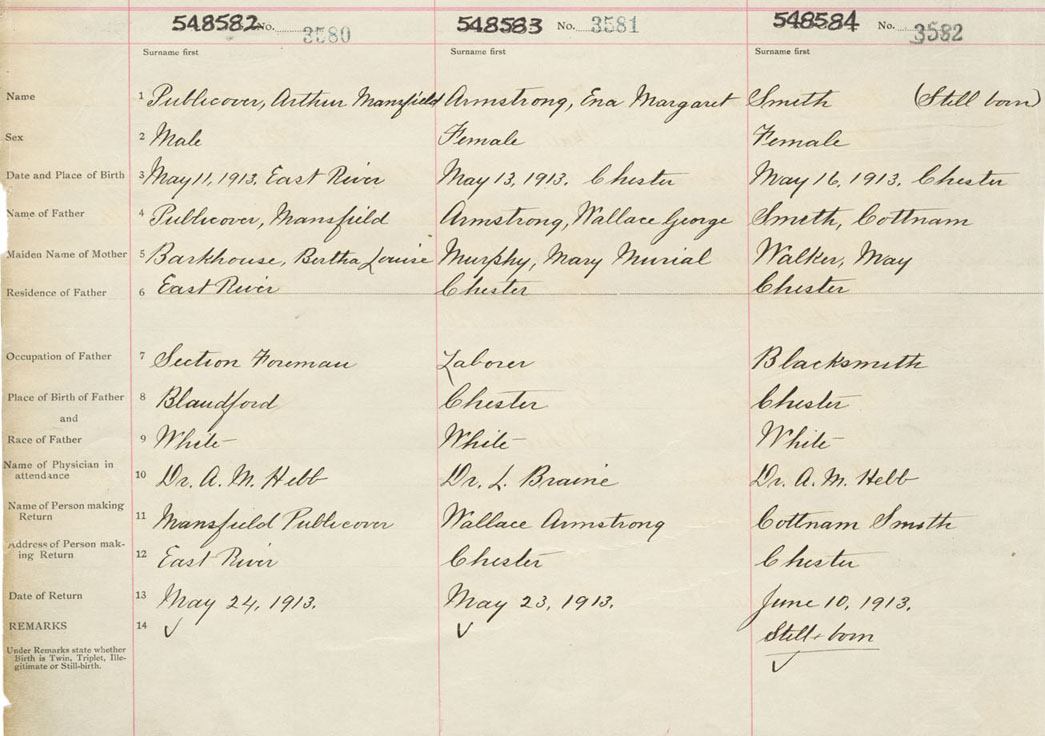 548582 No. 3580 548583 No. 3581 548584 No. 3582
Surname first Surname first Surname first
Name 1 Publicover, Arthur Mansfield Armstrong, Ena Margaret Smith (Still born)
Sex 2 Male Female Female
Date and Place of Birth 3 May 11, 1913. East River May 13, 1913. Chester May 16, 1913. Chester
Name of Father 4 Publicover, Mansfield Armstrong, Wallace George Smith, Cottnam
Maiden Name of Mother 5 Barkhouse, Bertha Louise Murphy, Mary Murial Walker, May
Residence of Father 6 East River Chester Chester
Occupation of Father 7 Section Foreman Laborer Blacksmith
Place of Birth of Father 8 Blandford Chester Chester
and
Race of Father 9 White White White
Name of Physician in
attendance 10 Dr. A. M. Hebb Dr. L. Braine Dr. A. M. Hebb
Name of Person making
Return 11 Mansfield Publicover Wallace Armstrong Cottnam Smith
Address of Person mak-
ing Return 12 East River Chester Chester
Date of Return 13 May 24, 1913. May 23, 1913. June 10, 1913.
REMARKS 14 Still-born
Under Remarks state whether
Birth is Twin, Triplet, Ille-
gitimate or Still-birth.